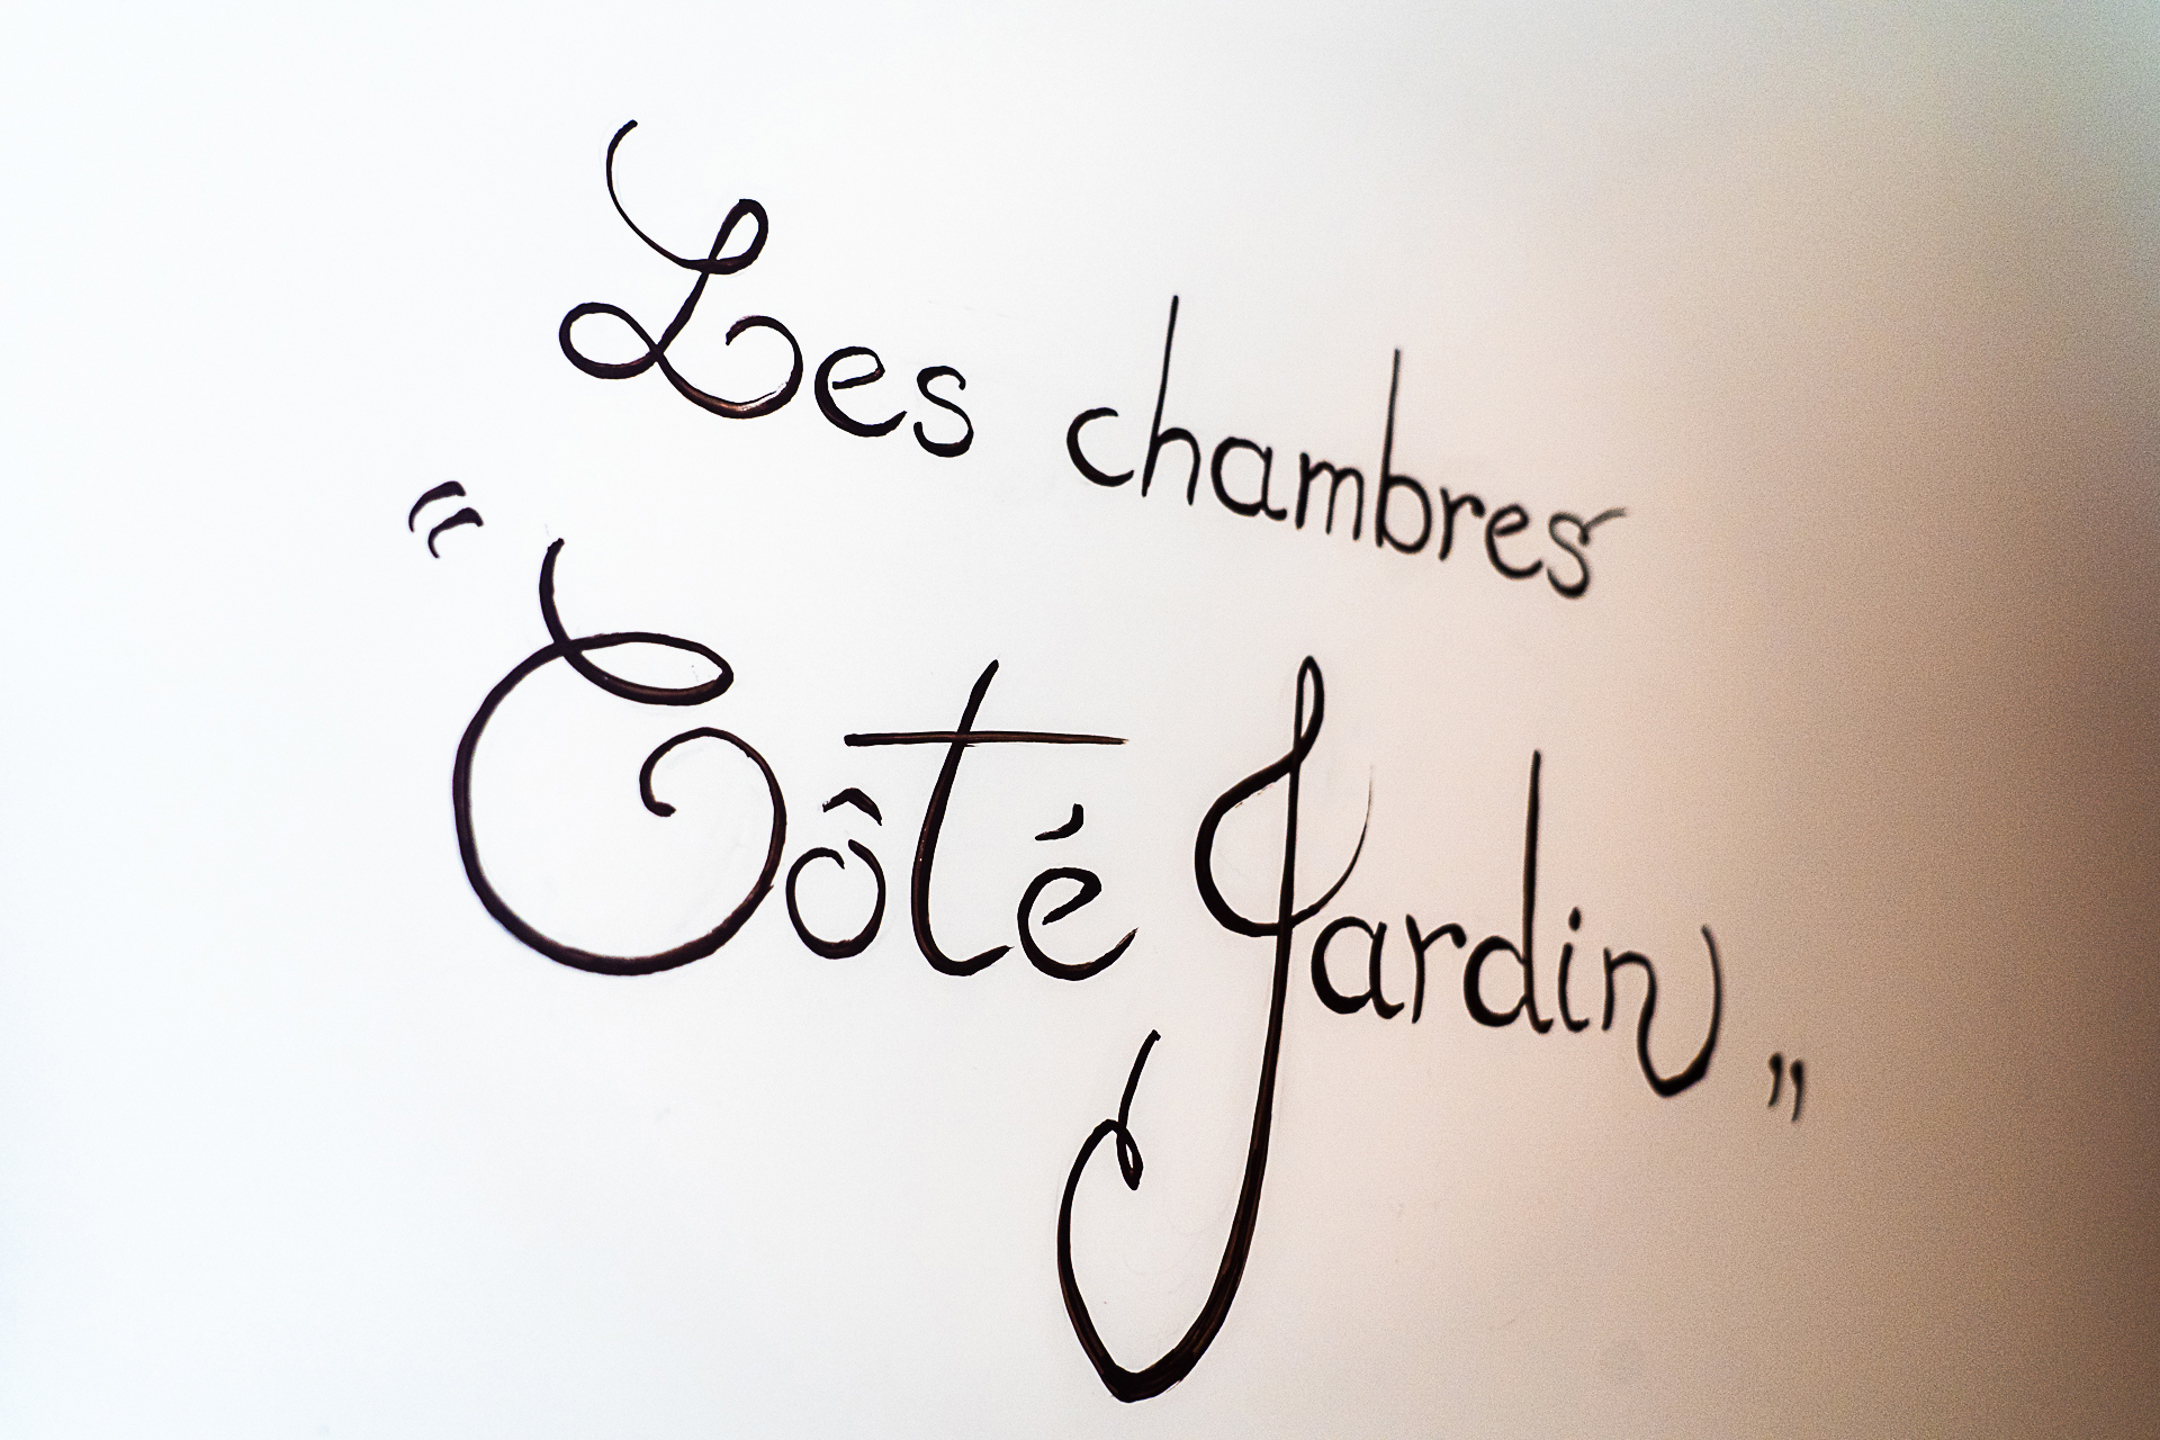 Les chambres
“Côté Jardin”